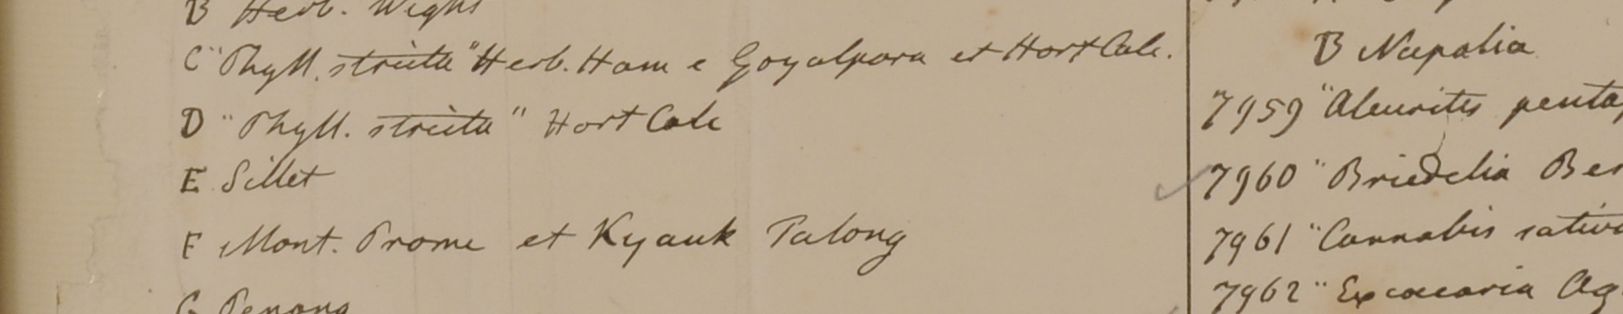 B Herb. Wight
C "Phyll. stricta" Herb. Ham e Goyalpara et Hort Calc.
D "Phyll. stricta" Hort Calc
E Sillet
F Mont. Prome et Kyauk Talong
G Penang
B Napalia
7959 "Aleurites penta
7960 "Briedelia Ber
7961 "Cannabis sativa
7962 "Excoecaria Ag